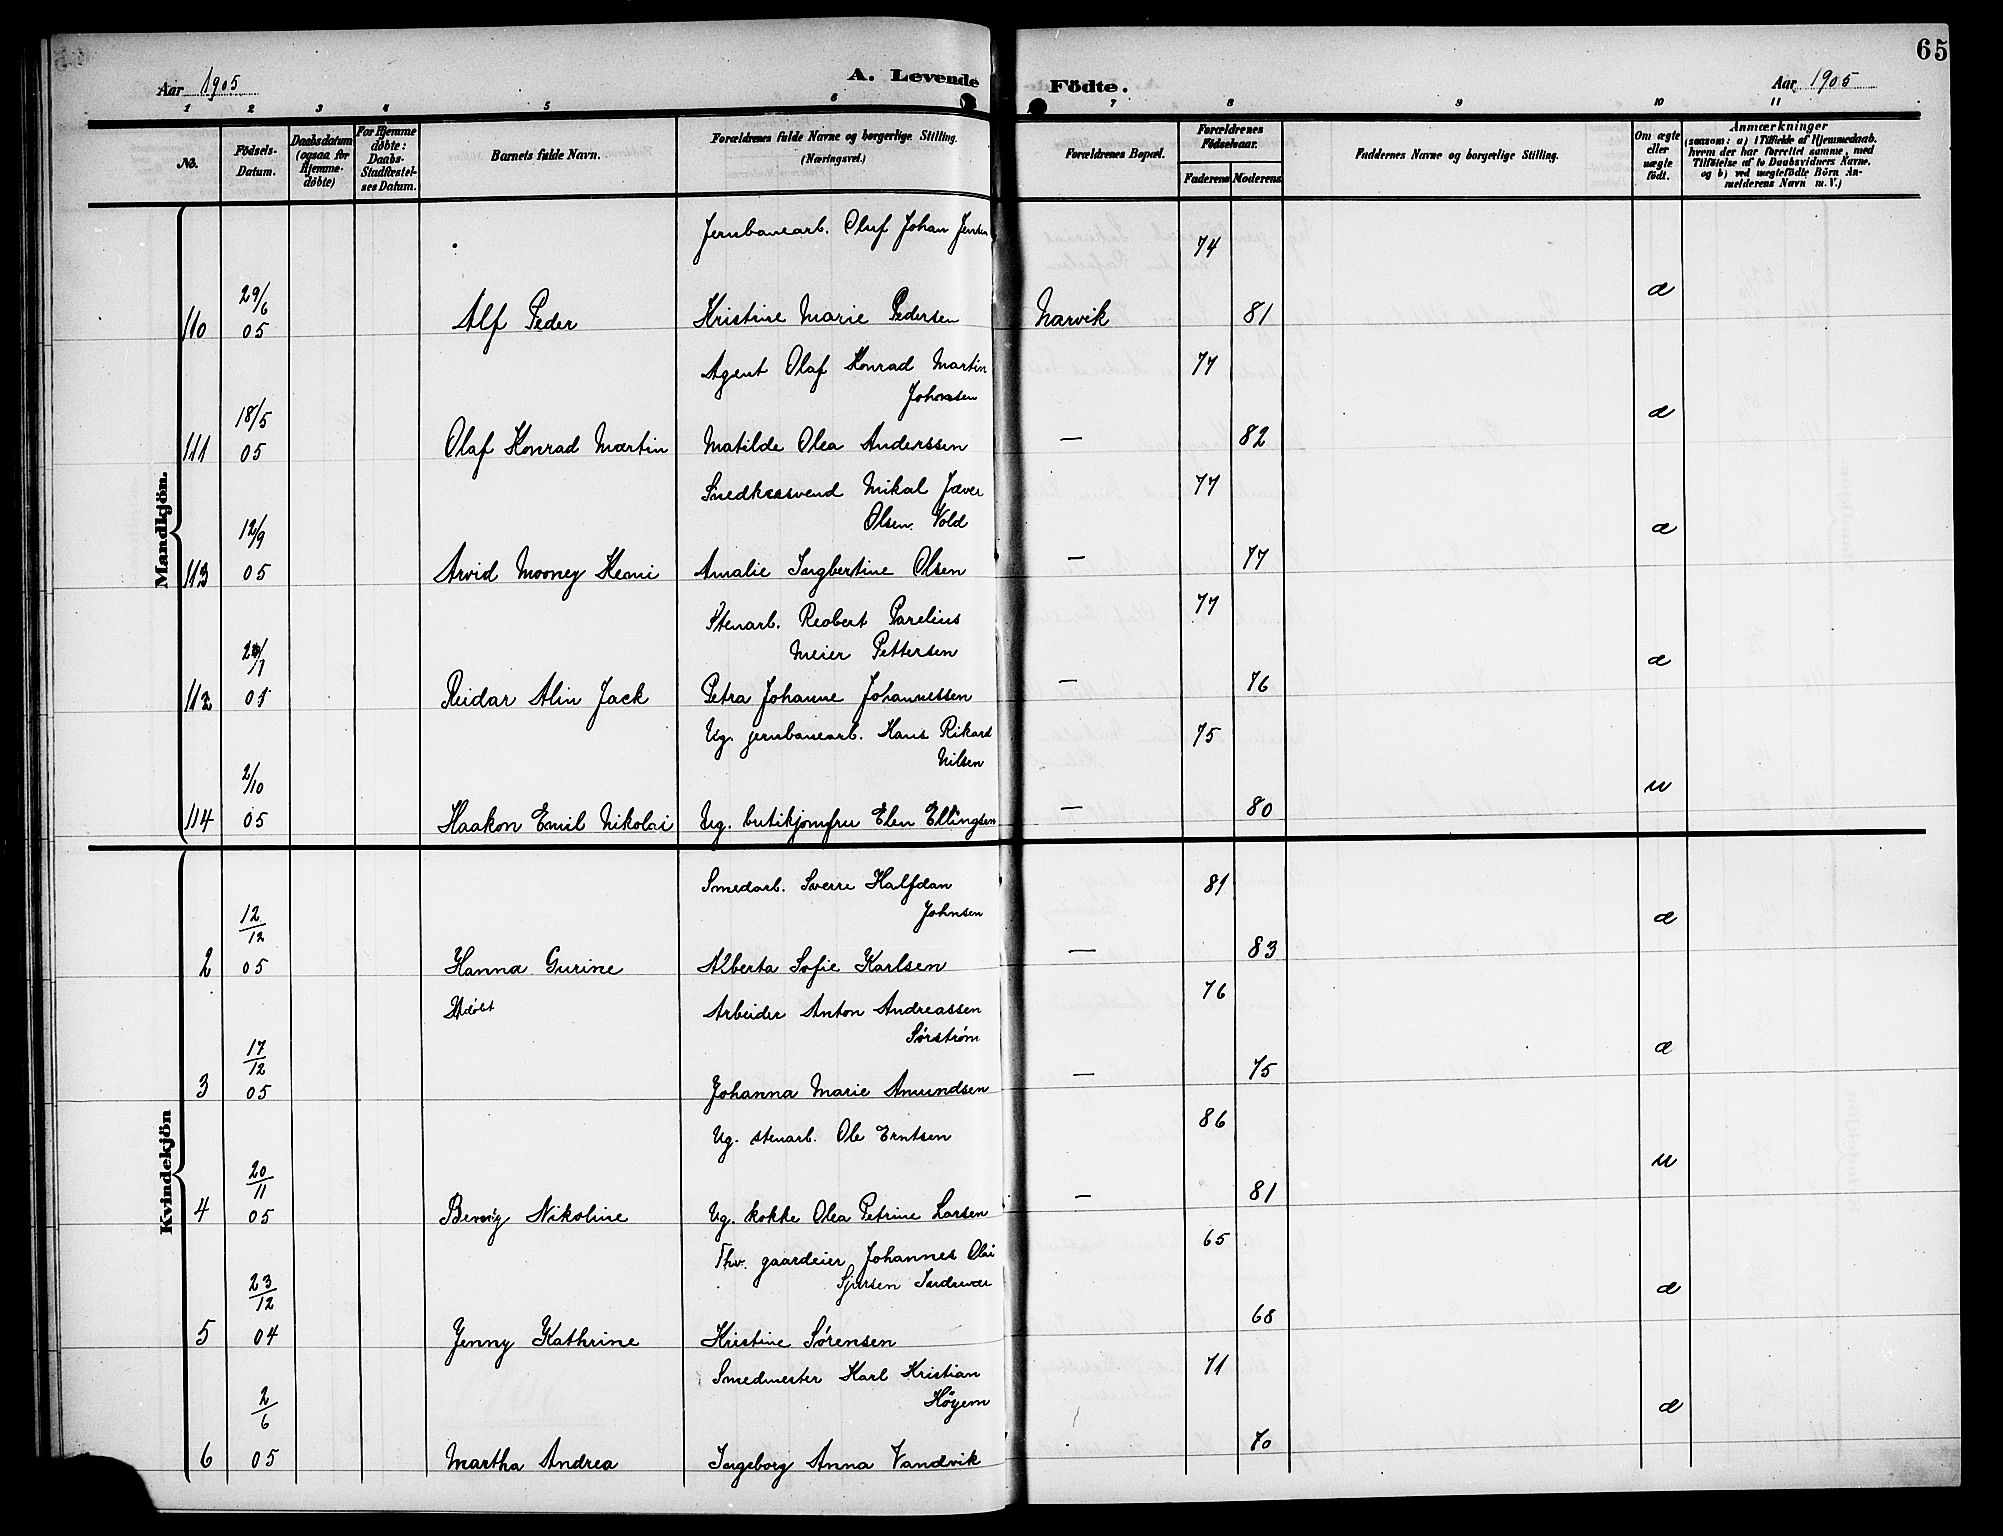 65
Aar 1905
A. Levende Födte.
Aar 1905
1 2 3 4 5 6 7 8 9 10 11
No.
Födsels-Datum.
Daabsdatum (ogsaa for Hjemmedøbte)
For Hjemmedøbte: Daabs-Stadfæstelses Datum.
Barnets fulde Navn.
Forældrenes fulde Navne og borgerlige Stilling. (Næringsvei.)
Forældrenes Bopæl.
Forældrenes Födselsaar.
Faderens Moderens
Faddernes Navne og borgerlige Stilling.
Om ægte eller uægte födt.
Anmærkninger
(saasom: a) i Tilfælde af Hjemmedaab.
hvem der har forrettet samme, med
Tilföielse af to Daabsvidners Navne.
og b) ved uægtefödte Börn An-
melderens Navn m. V.)
Mandkjön.
Jernbanearb. Oluf Johan Jensen 74
29/6 æ
110 05 Alf Peder Kristine Marie Pedersen Narvik 81
Agent Olaf Konrad Martin 77
Johansen
18/5 æ
111 05 Olaf Konrad Martin Matilde Olea Anderssen — 82
Snedkersvend Mikal Jæver 77
Olsen Vold
12/9 æ
113 05 Arvid Mooney Hemi Amalie Ingbertine Olsen — 77
Stenarb. Reobert Parelius 77
Meier Pettersen
æ
112 05 Reidar Alin Jack Petra Johanne Johannessen — 76
Ug. jernbanearb. Hans Rikard 75
Nilsen
2/10 u
114 05 Haakon Emil Nikolai Ug. butikjomfru Elen Ellingsen — 80
Kvindekjön
Smedarb. Sverre Halfdan 81
Johnsen
12/12 æ
2 05 Hanna Gurine Alberta Sofie Karlsen — 83
Udöbt Arbeider Anton Andreassen 76
Sørstrøm
17/12 æ
3 05 Johanna Marie Amundsen — 75
Ug. stenarb. Ole Erntsen 86
20/11 u
4 05 Nikoline Ug. kokke Olea Petrine Larsen — 81
Thv. gaardeier Johannes Olai 65
Sjursen
23/12 æ
5 04 Jenny Kathrine Kristine Sørensen 68
Smedmester Karl Kristian 71
Høyem
2/6 æ
6 05 Martha Andrea Ingeborg Anna Vandvik 70